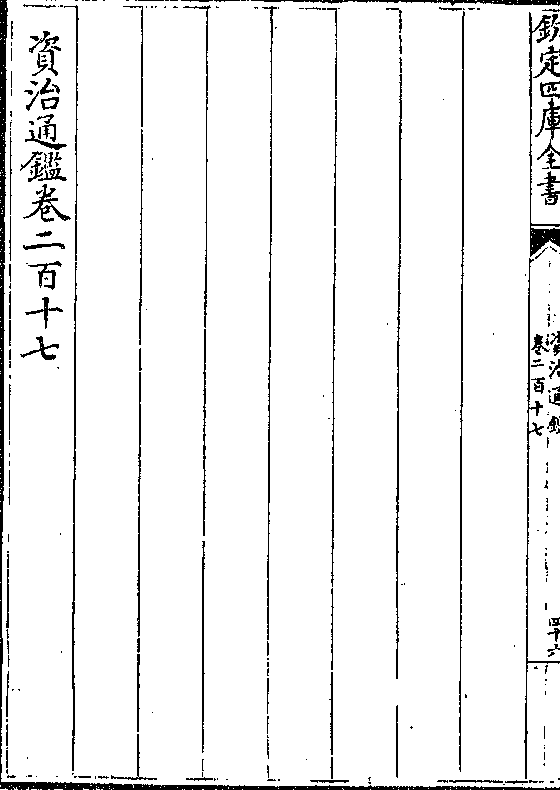 欽定四庫全書
資治通鑑
卷二百十七
四十六
資治通鑑卷二百十七